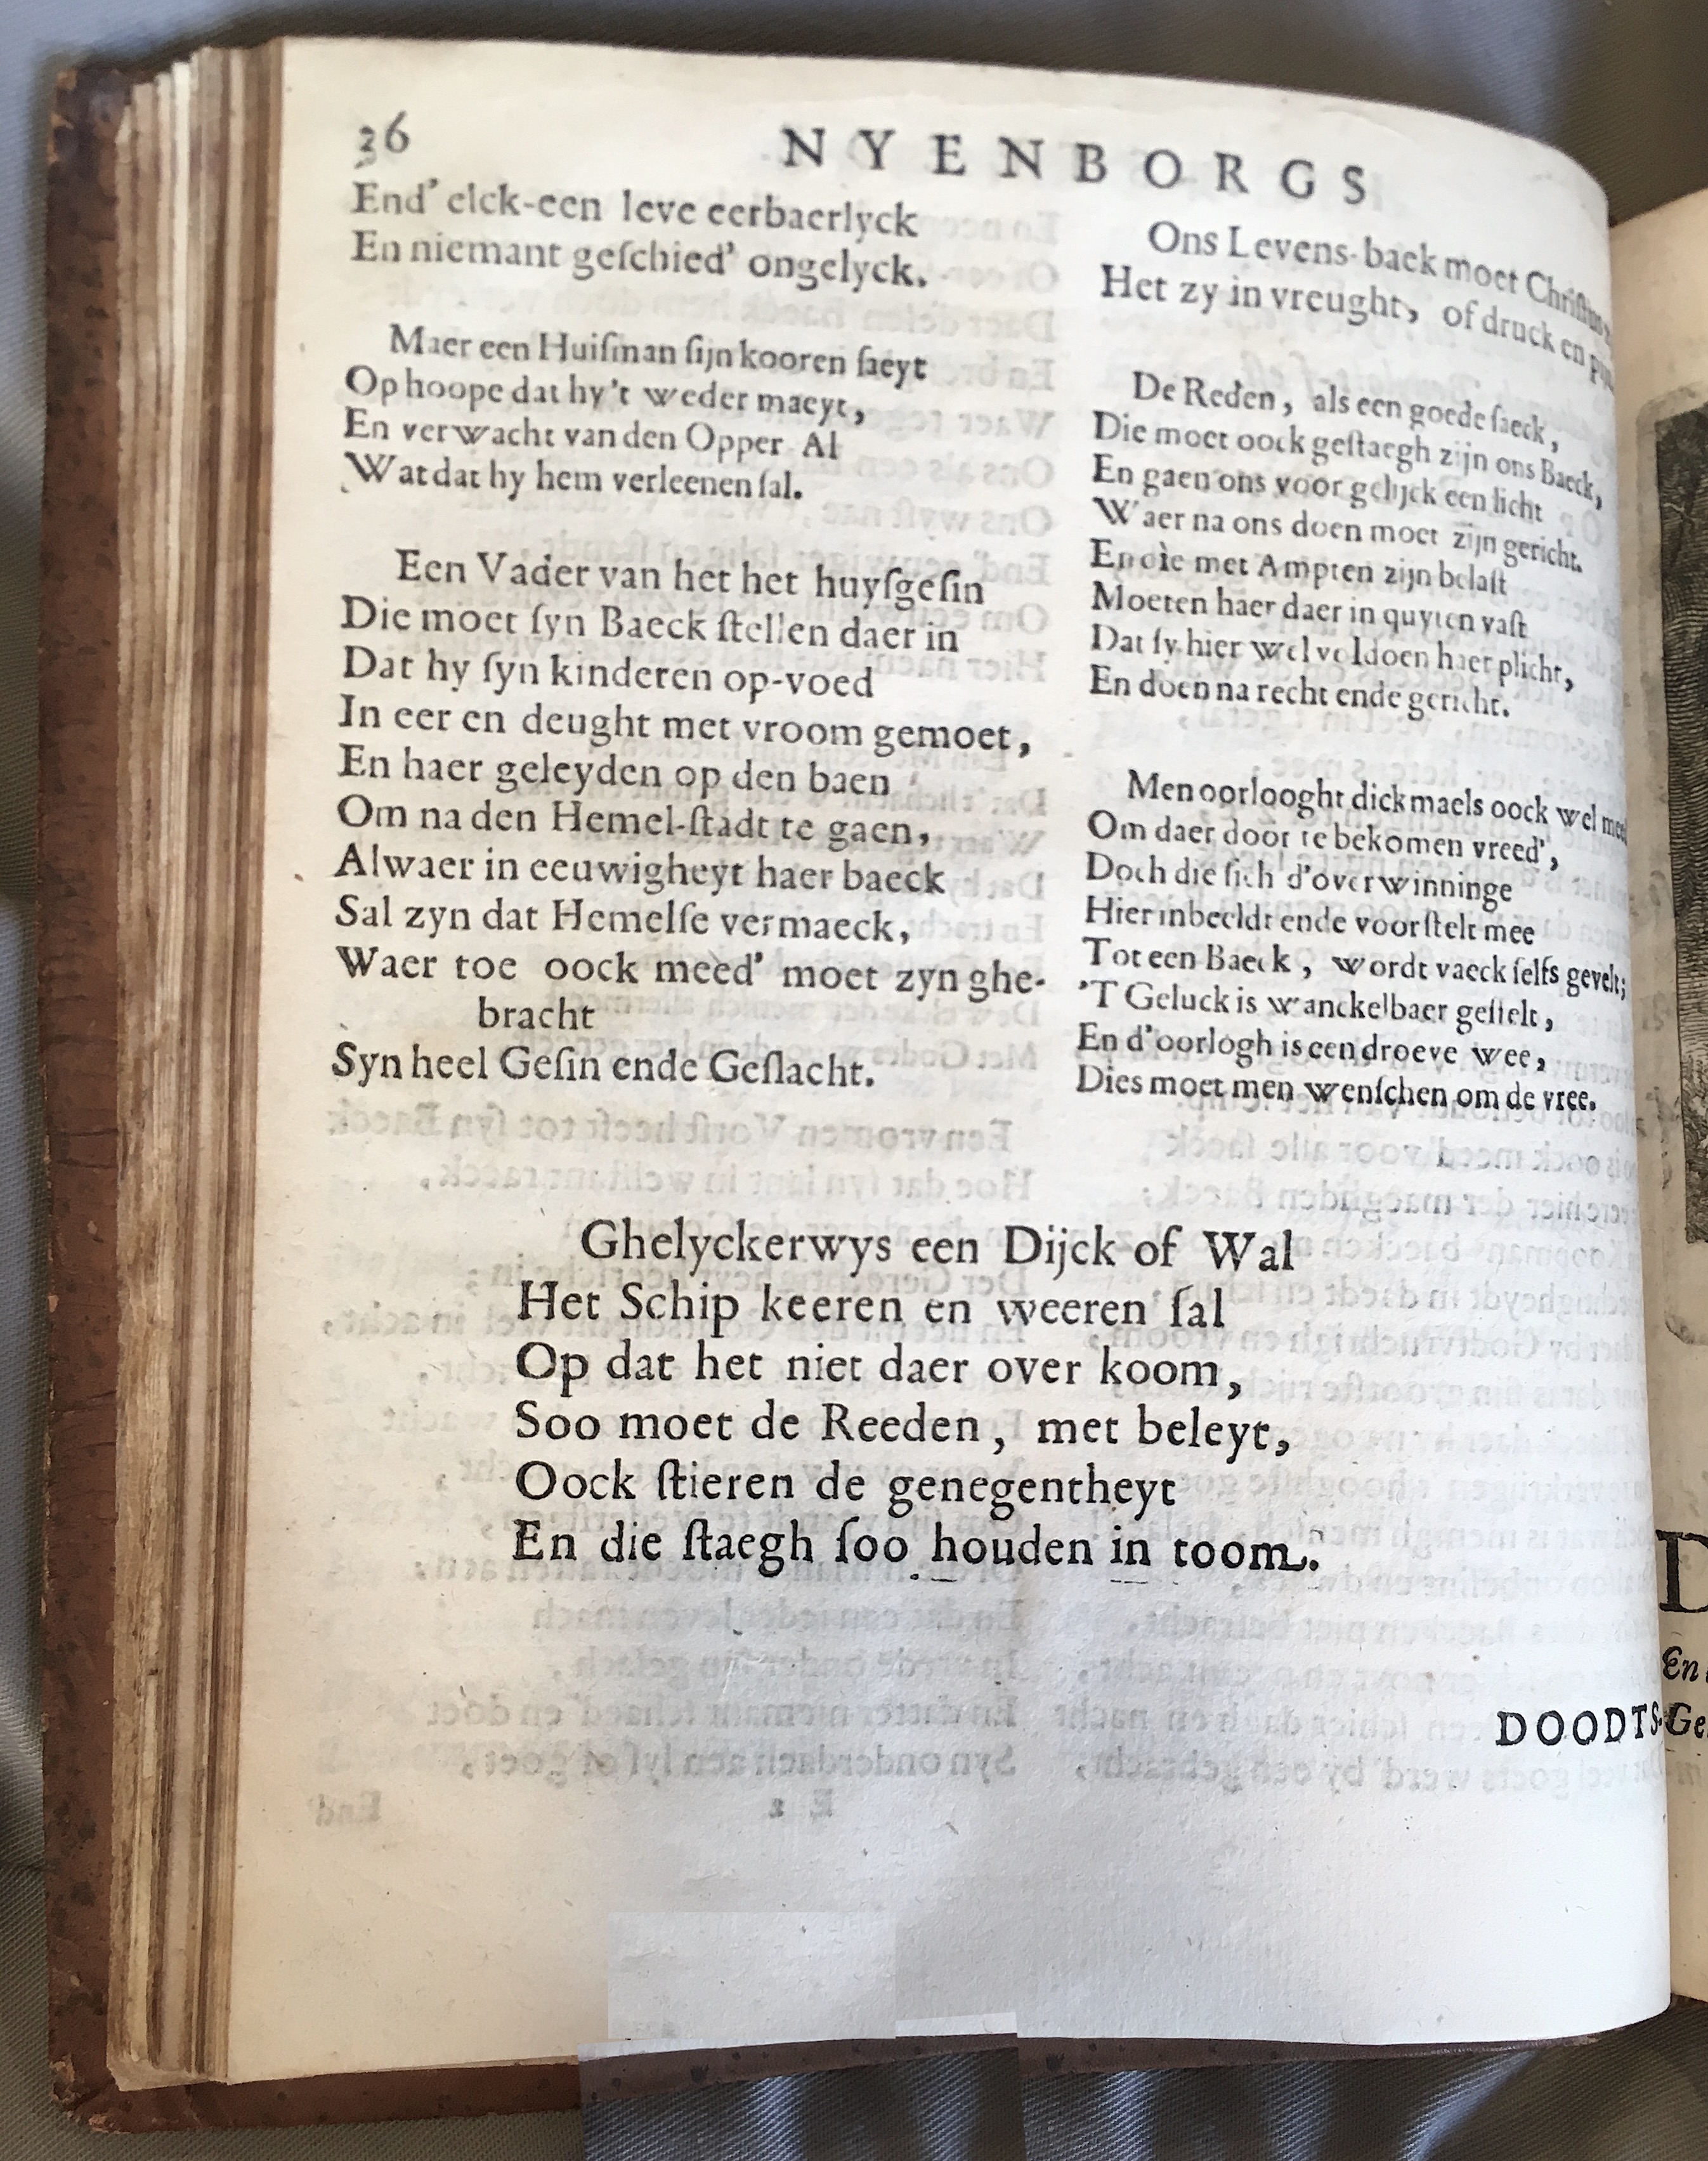 36
NYENBORGS
End' elck-een leve eerbaerlyck
En niemant geſchied' ongelyck.
Maer een Huiſman ſijn kooren ſaeyt
Op hoope dat hy't weder maeyt,
En verwacht van den Opper Al
Wat dat hy hem verleenen ſal.
Een Vader van het het huyſgeſin
Die moet ſyn Baeck ſtellen daer in
Dat hy ſyn kinderen op-voed
In eer en deught met vroom gemoet,
En haer geleyden op den baen
Om na den Hemel-ſtadt te gaen,
Alwaer in eeuwigheyt haer baeck
Sal zyn dat Hemelſe vermaeck,
Waer toe oock meed' moet zyn ghe-
bracht
Syn heel Geſin ende Geſlacht.
Ons Levens-baek moet Chriſtus
Het zy in vreught, of druck en
De Reden, als een goede ſaeck,
Die moet oock geſtaegh zijn ons Baeck,
En gaen ons voor gelijck een licht
Waer na ons doen moet zijn gericht.
En die met Ampten zijn belaſt
Moeten haer daer in quyten vaſt
Dat ſy hier wel voldoen haer plicht,
En doen na recht ende gericht.
Men oorlooght dickmaels oock wel
Om daer door te bekomen vreed',
Doch die ſich d'overwinninge
Hier inbeeldt ende voorſtelt mee
Tot een Baeck, wordt vaeck ſelfs gevelt;
'T Geluck is wanckelbaer geſtelt,
En d'oorlogh is een droeve wee,
Dies moet men wenſchen om de vree.
Ghelyckerwys een Dijck of Wal
Het Schip keeren en weeren ſal
Op dat het niet daer over koom,
Soo moet de Reeden, met beleyt,
Oock ſtieren de genegentheyt
En die ſtaegh ſoo houden in toom.
DOODTS-
D
En
Ge